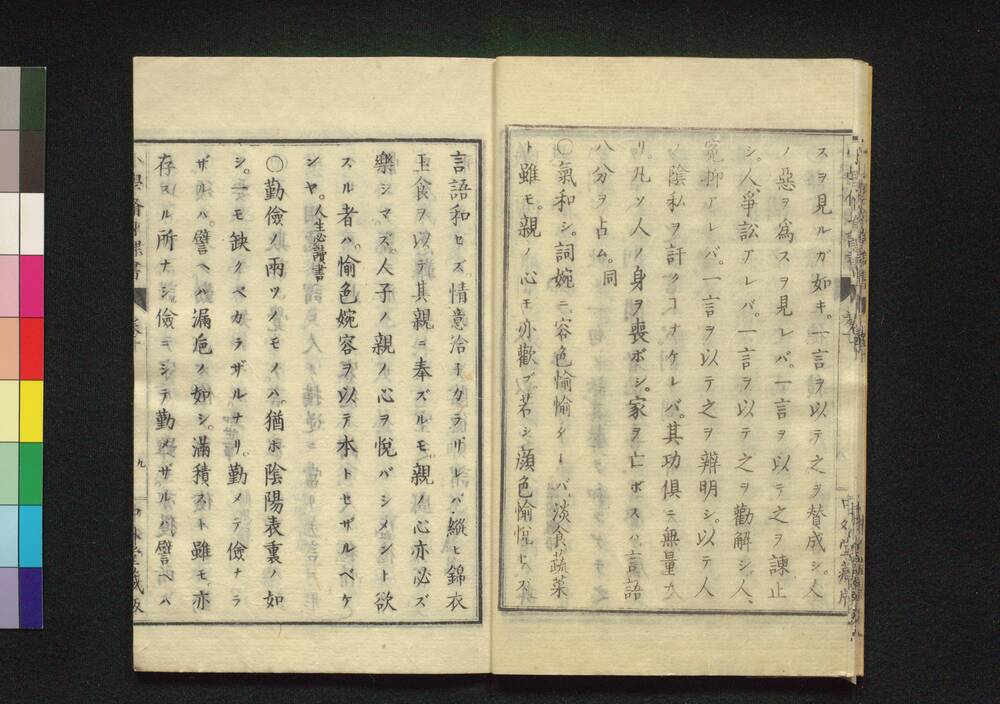 スヲ見ルガ如キ。一言ヲ以テ之ヲ賛成シ。人
ノ惡ヲ爲スヲ見レバ。一言ヲ以テ之ヲ諫止
シ。人、爭訟アレバ。一言ヲ以テ之ヲ勸解シ。人、
冤抑アレバ。一言ヲ以テ之ヲ辨明シ。以テ人
ノ陰私ヲ訐クコナケレバ。其功俱ニ無量ナ
リ。凡ソ人ノ身ヲ喪ボシ。家ヲ亡ボスハ。言語
八分ヲ占ム。同
〇氣和シ。詞婉ニ。容色愉愉タレバ。淡食蔬菜
ト雖モ。親ノ心モ亦歡ブ。若シ顔色愉悅セズ
言語和セズ。情意洽子カラザレバ。縱ヒ錦衣
玉食ヲ以テ其親ニ奉ズルモ。親ノ心亦必ズ
樂シマズ。人子ノ親ノ心ヲ悅バシメント欲
スル者ハ。愉色婉容ヲ以テ本トセザルベケ
ンヤ。人生必讀書
〇勤儉ノ兩ツノモノハ。猶ホ陰陽表裏ノ如
シ。一モ缺クベカラザルナリ。勤メテ儉ナラ
ザルハ。譬ヘバ漏巵ノ如シ。滿積スト雖モ。亦
存スル所ナシ。儉ニシテ勤メザルハ。譬ヘバ
九